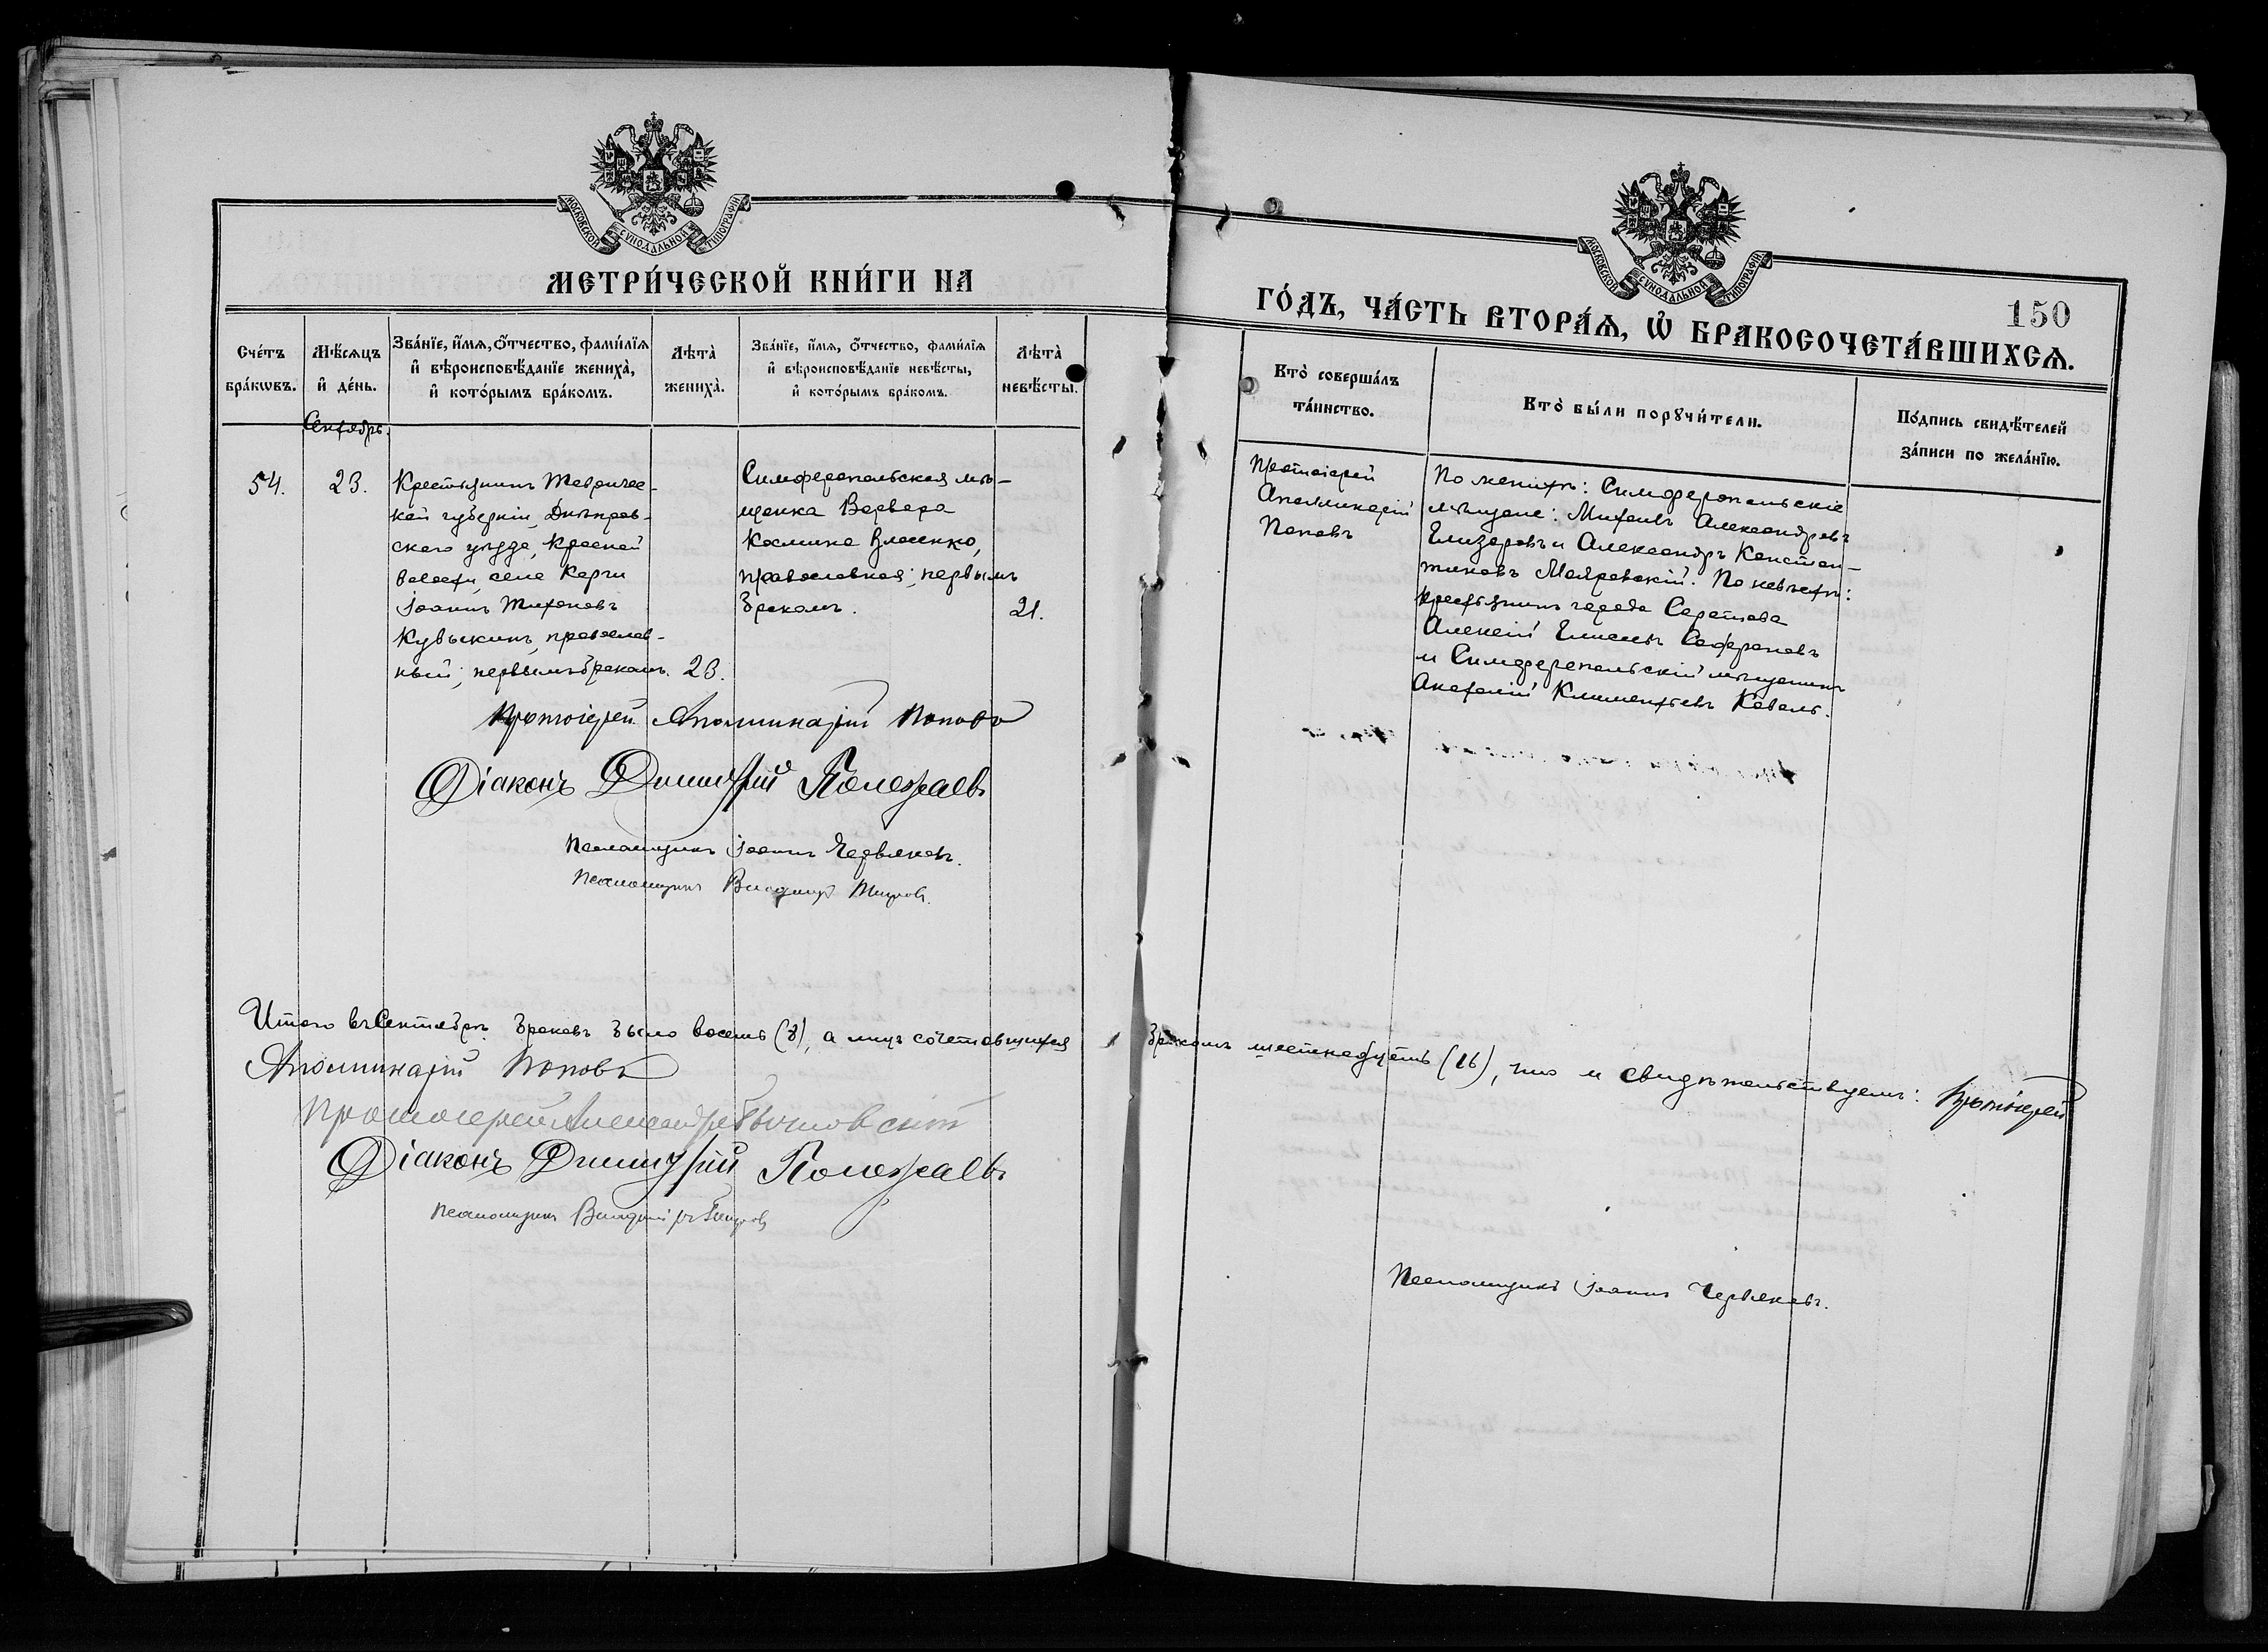 МОСКОВСКОЙ СѴНОДАЛЬНОЙ ТИПОГРАФІИ
МЕТРИ́ЧЕСКОЙ КНИ́ГИ НА
Сче́тъ бра́кωвъ.
Мѣ́сѧцъ и҆ де́нь.
Зва́нїе, и҆́мѧ, ѻ҆́тчество, фами́лїѧ и҆ вѣроисповѣ́данїе жениха̀, и҆ кото́рымъ бра́комъ.
Лѣта̀ жениха̀.
Зва́нїе, и҆́мѧ, ѻ҆́тчество, фами́лїѧ и҆ вѣроисповѣ́данїе невѣ́сты, и҆ кото́рымъ бра́комъ.
Лѣта̀ невѣ́сты.
Сентябрь.
54.
23.
Крестьянинъ Тавричес-
кой губерніи, Днѣпров-
скаго уѣзда, Красной
волости, села Карги
Іоаннъ Тихоновъ
Кувыкинъ, православ-
ный, первымъ бракомъ.
23.
Симферопольская мѣ-
щанка Варвара
Космина Власенко,
православная, первымъ
бракомъ.
21.
Протоіерей Аполлинарій Поповъ
Діаконъ Димитрій Полежаевъ
Псаломщикъ Іоаннъ Червяковъ.
Псаломщикъ Владиміръ
Итого въ Сентябрѣ браковъ было восемь (8), а лицъ сочетавшихся
Аполлинарій Поповъ
Протоіерей Александръ
Діаконъ Димитрій Полежаевъ
Псаломщикъ Владиміръ
МОСКОВСКОЙ СѴНОДАЛЬНОЙ ТИПОГРАФІИ
150
ГО́ДЪ, ЧА́СТЬ ВТОРА́Ѧ, Ѽ БРАКОСОЧЕТА́ВШИХСѦ.
Кто̀ соверша́лъ та́инство.
Кто̀ бы́ли порꙋчи́тели.
По́дпись свидѣ́телей за́писи по жела́нїю.
Протоіерей
Аполлинарій
Поповъ
По женихѣ: Симферопольскіе
мѣщане: Михаилъ Александровъ
Елизаровъ и Александръ Констан-
тиновъ Маяровскій. По невѣстѣ:
крестьянинъ города Саратова
Алексѣй Елисеевъ Сафроновъ
и Симферопольскій мѣщанинъ
Анатолій Климентьевъ Коваль.
бракомъ шестнадцать (16), что и свидѣтельствуемъ: Протоіерей
Псаломщикъ Іоаннъ Червяковъ.